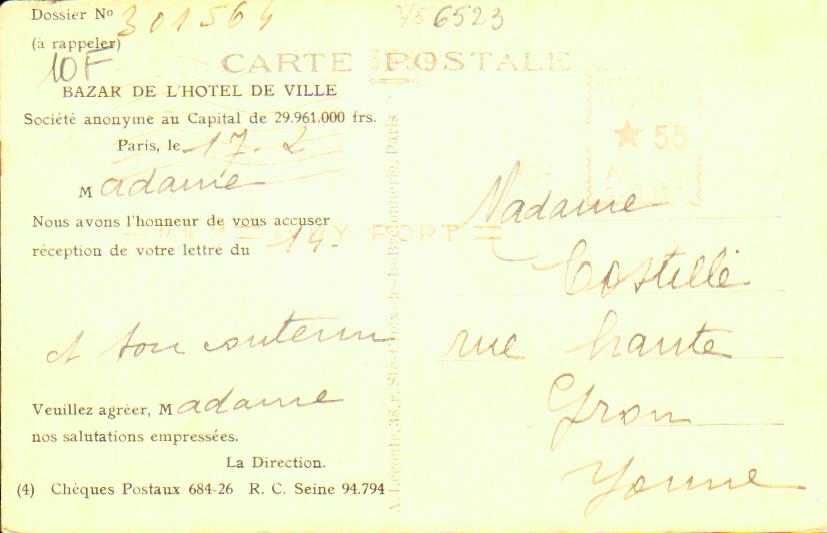 Dossier Nº 301564
(à rappeler)
10F
456523
CARTE POSTALE
BAZAR DE L'HOTEL DE VILLE
Société anonyme au Capital de 29.961.000 frs.
Paris, le 17.2
Madame
Nous avons l'honneur de vous accuser
réception de votre lettre du 14-
et son contenu
Veuillez agréer, Madame
nos salutations empressées.
La Direction.
(4) Chéques Postaux 684-26 R. C. Seine 94.794
A. Leconte, 38, r. Ste-Croix-de-la-Bretonnerie, Paris
★ 55
IVRY PORT
Madame
Costille
rue haute
Gron
Yonne